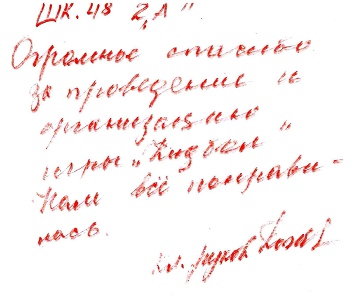 Шк. 48 2 „А"
Огромное спасибо
за проведение и
организацию
игры „
Нам всё понрави-
лась.
кл. руков